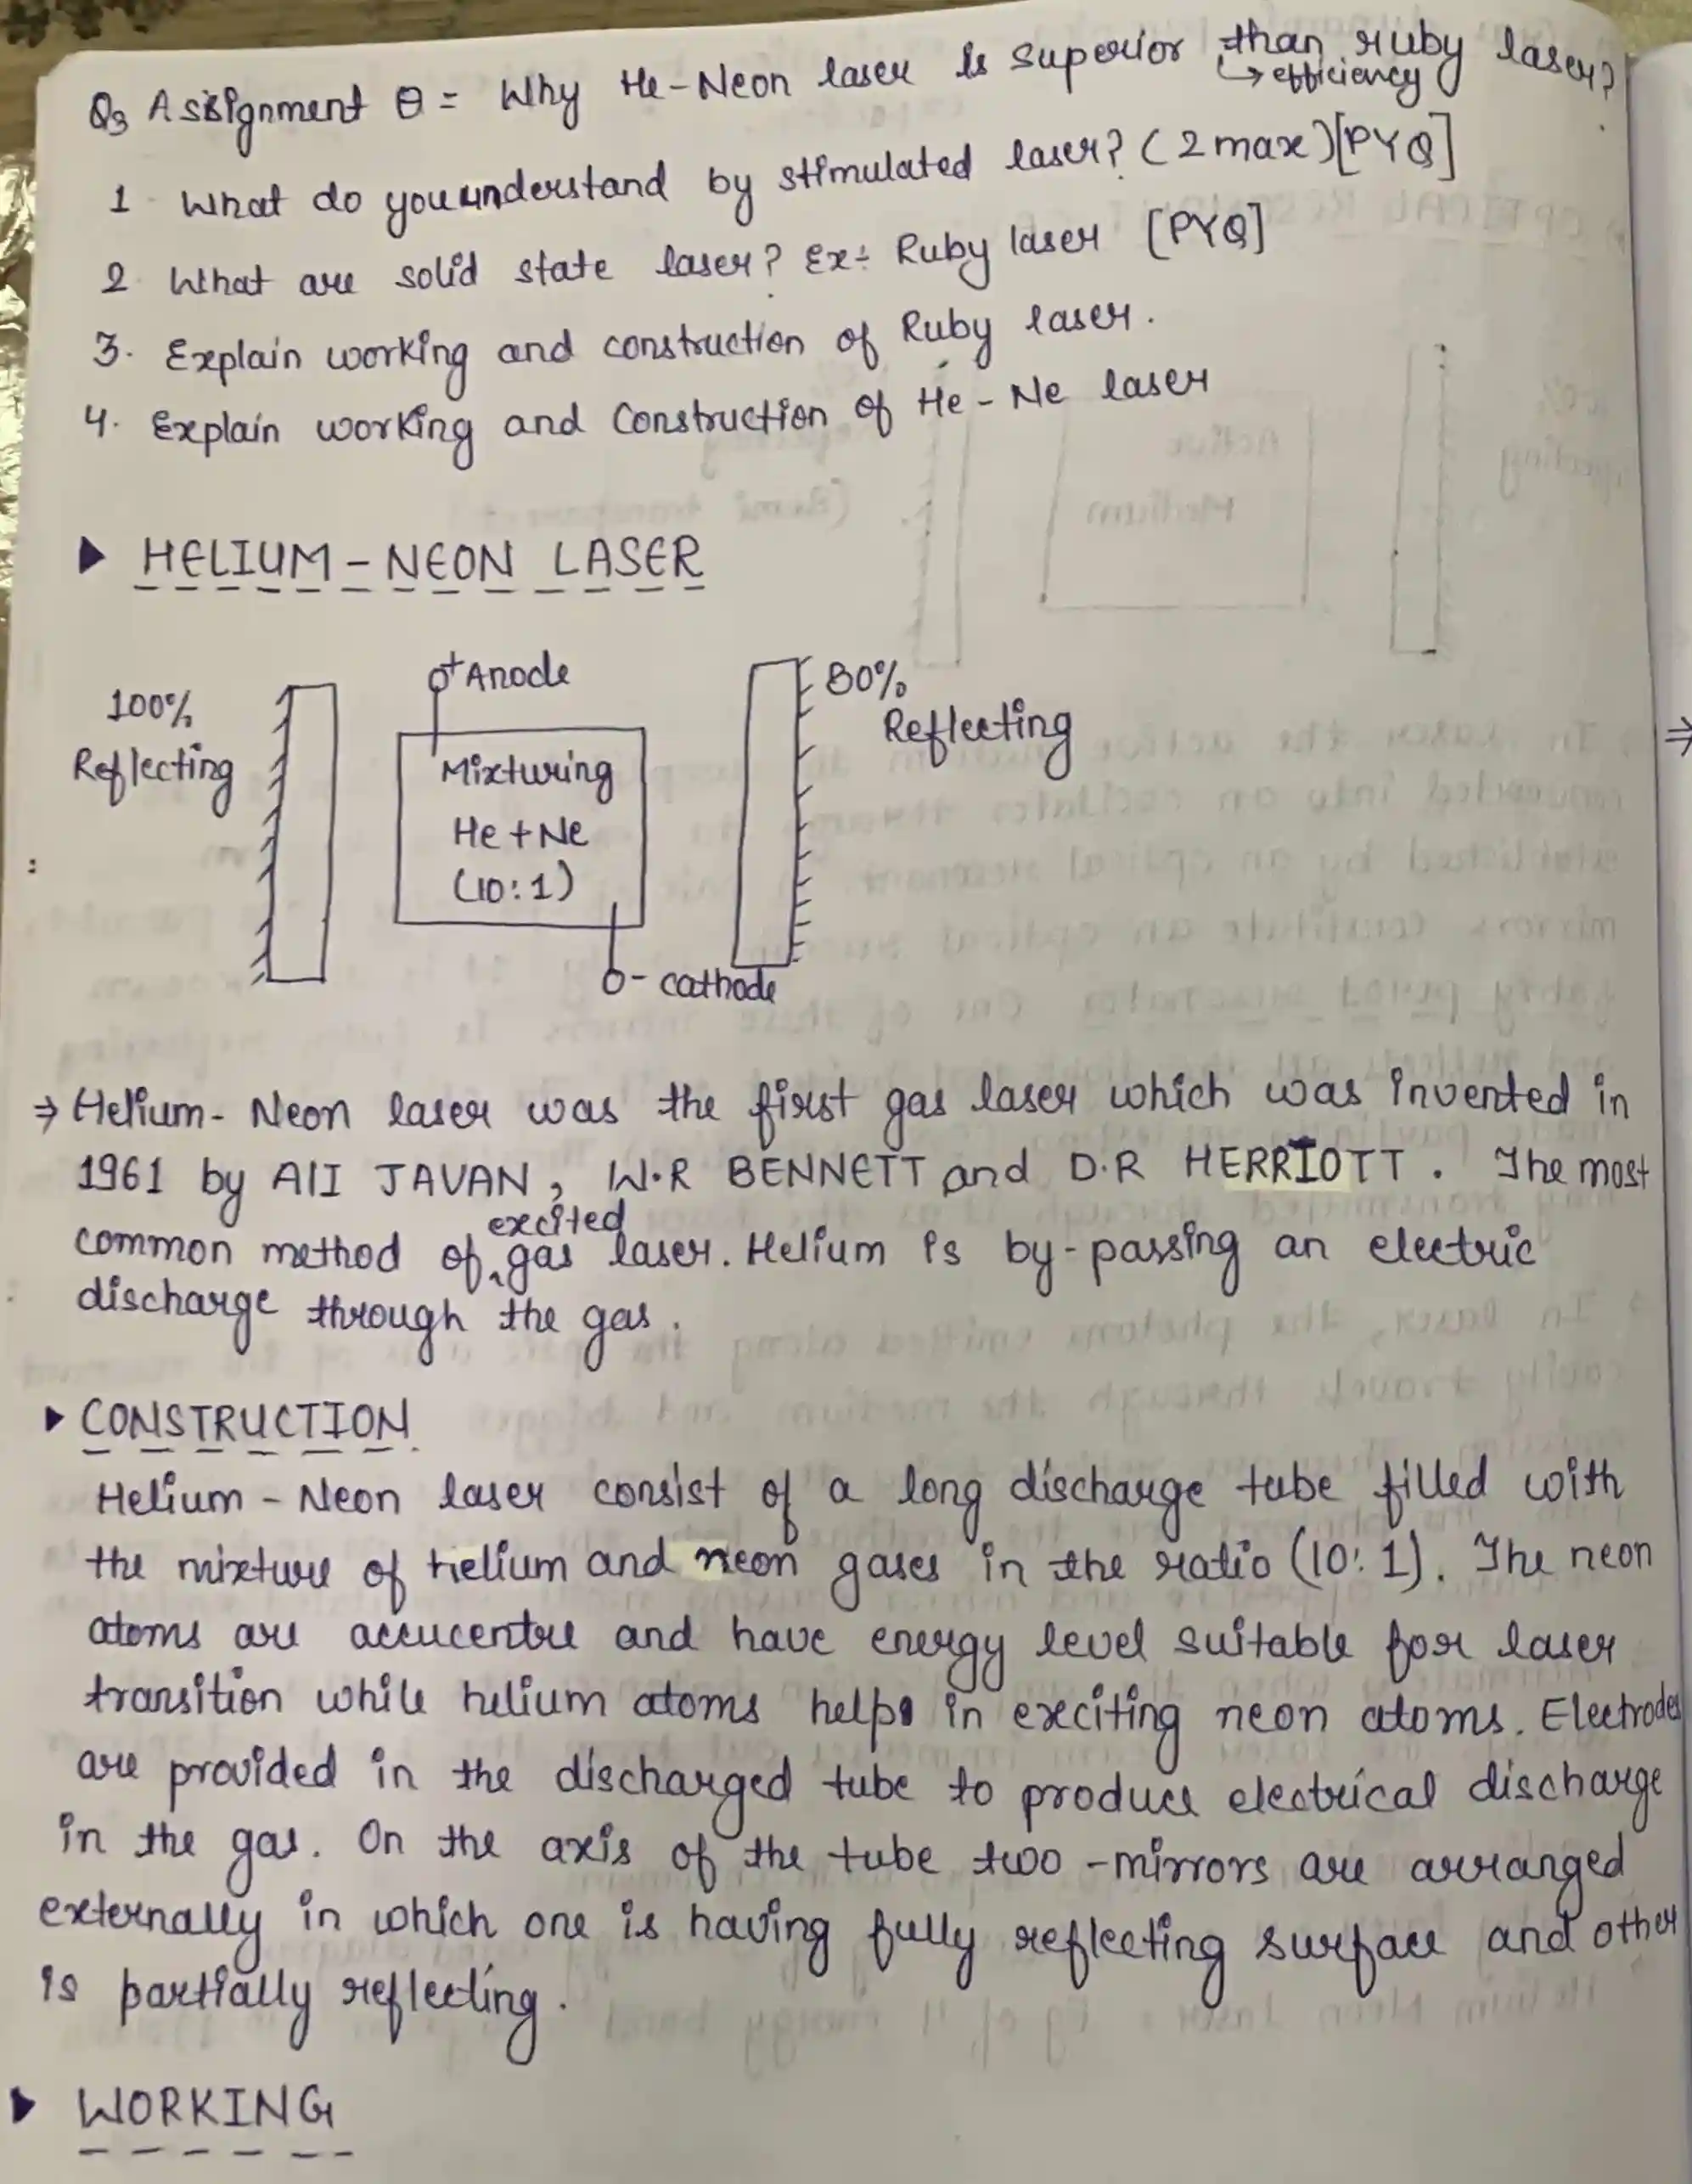 Q3 Assignment Q = Why He-Neon laser is superior than ruby laser?
↳ efficiency
1 What do you understand by stimulated laser? (2 max) [PYQ]
2 What are solid state laser? Ex÷ Ruby laser [PYQ]
3. Explain working and construction of Ruby laser.
4. Explain working and Construction of He-Ne laser
▶ HELIUM-NEON LASER
100%
Reflecting
+ Anode
Mixturing
He + Ne
(10:1)
- cathode
80%
Reflecting
⇒ Helium-Neon laser was the first gas laser which was invented in
1961 by AlI JAVAN, W.R BENNETT and D.R HERRIOTT. The most
common method of excited gas laser. Helium is by-passing an electric
discharge through the gas.
▶ CONSTRUCTION
Helium-Neon laser consist of a long discharge tube filled with
the mixture of Helium and neon gases in the ratio (10:1). The neon
atoms are accucentre and have energy level suitable for laser
transition while helium atoms helps in exciting neon atoms. Electrodes
are provided in the discharged tube to produce electrical discharge
in the gas. On the axis of the tube two-mirrors are arranged
externally in which one is having fully reflecting surface and other
is partially reflecting.
▶ WORKING